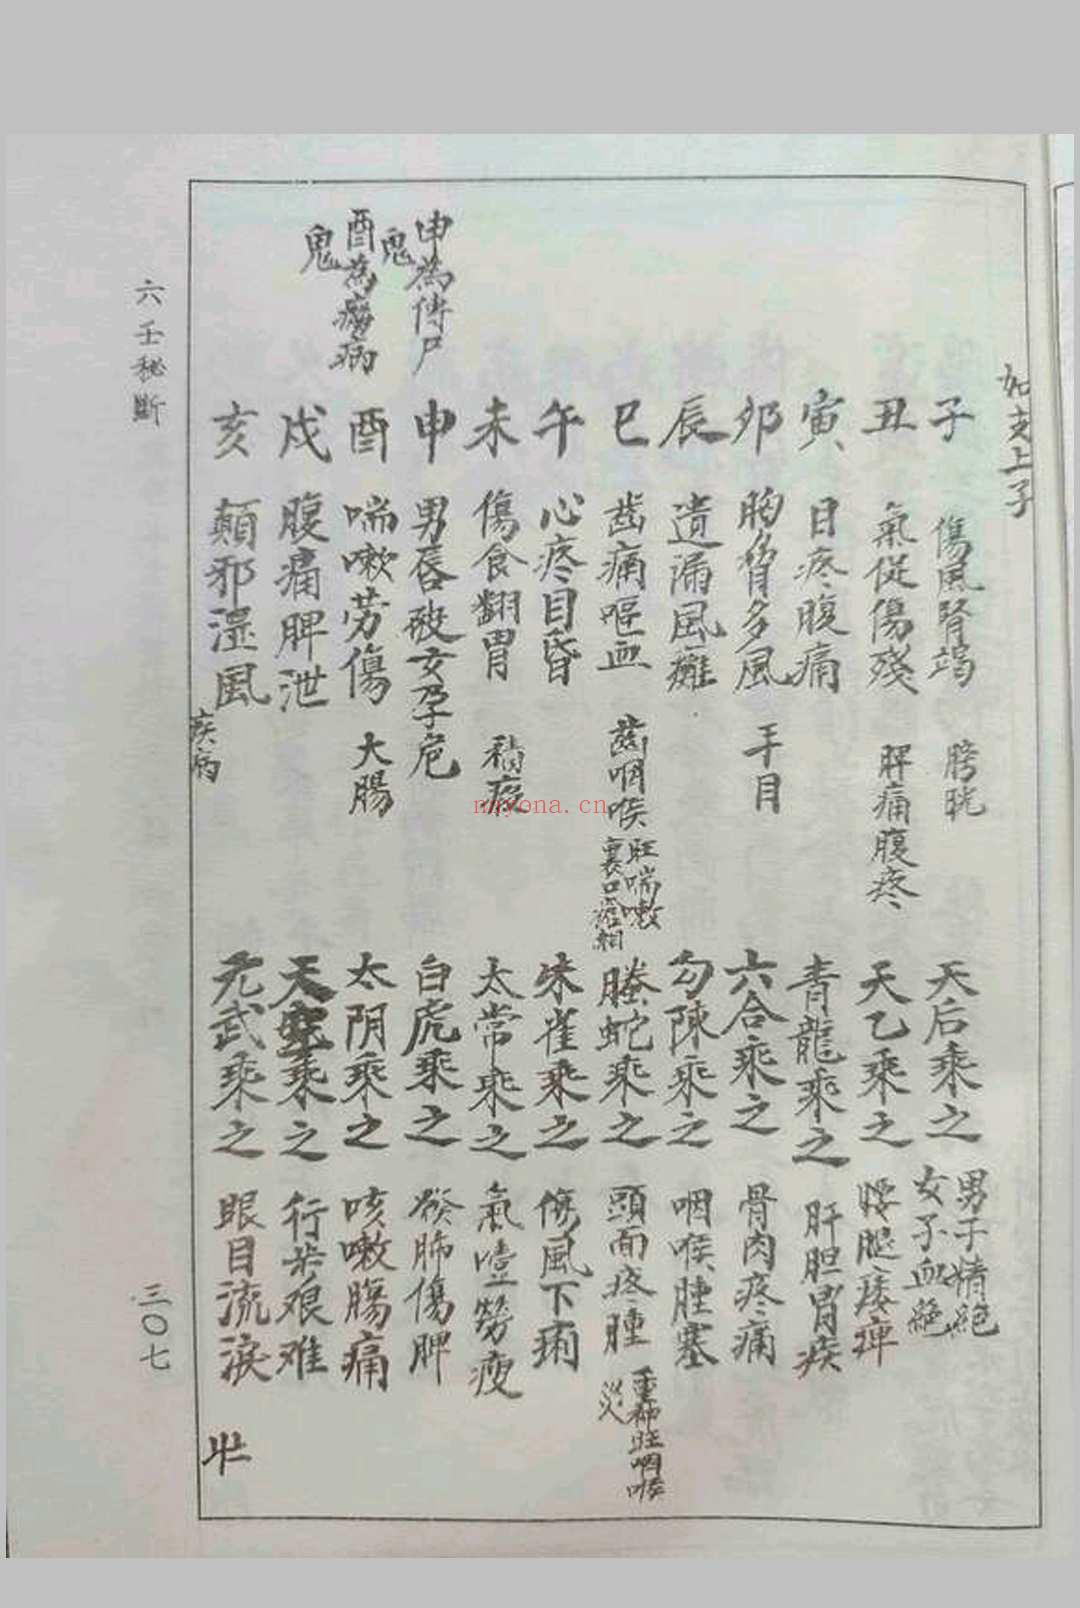 如支上子
子 傷風腎竭 膀胱 天后乘之 男子精絕 女子血絕
丑 氣促傷殘 脾痛腹疼 天乙乘之 腰腿痿痺
寅 目疼腹痛 青龍乘之 肝胆胃疾
卯 胸脅多風 手目 六合乘之 骨肉疼痛
辰 遺漏風癱 勾陳乘之 咽喉腫塞
巳 齒痛嘔血 齒咽喉 旺喘嗽 螣蛇乘之 頭面疼腫 重神旺咽喉 災
午 心疼目昏 朱雀乘之 傷風下痢
未 傷食翻胃 太常乘之 氣噎勞瘦
申為傳尸鬼
申 男唇破女孕危 白虎乘之 肺傷脾
酉為癆病鬼
酉 喘嗽劳傷 大腸 太阴乘之 咳嗽腸痛
戌 腹痛脾泄 天空乘之 行步艰难
亥 顛邪溼風 元武乘之 眼目流淚
疾病
六壬秘斷
三〇七
nayona.cn